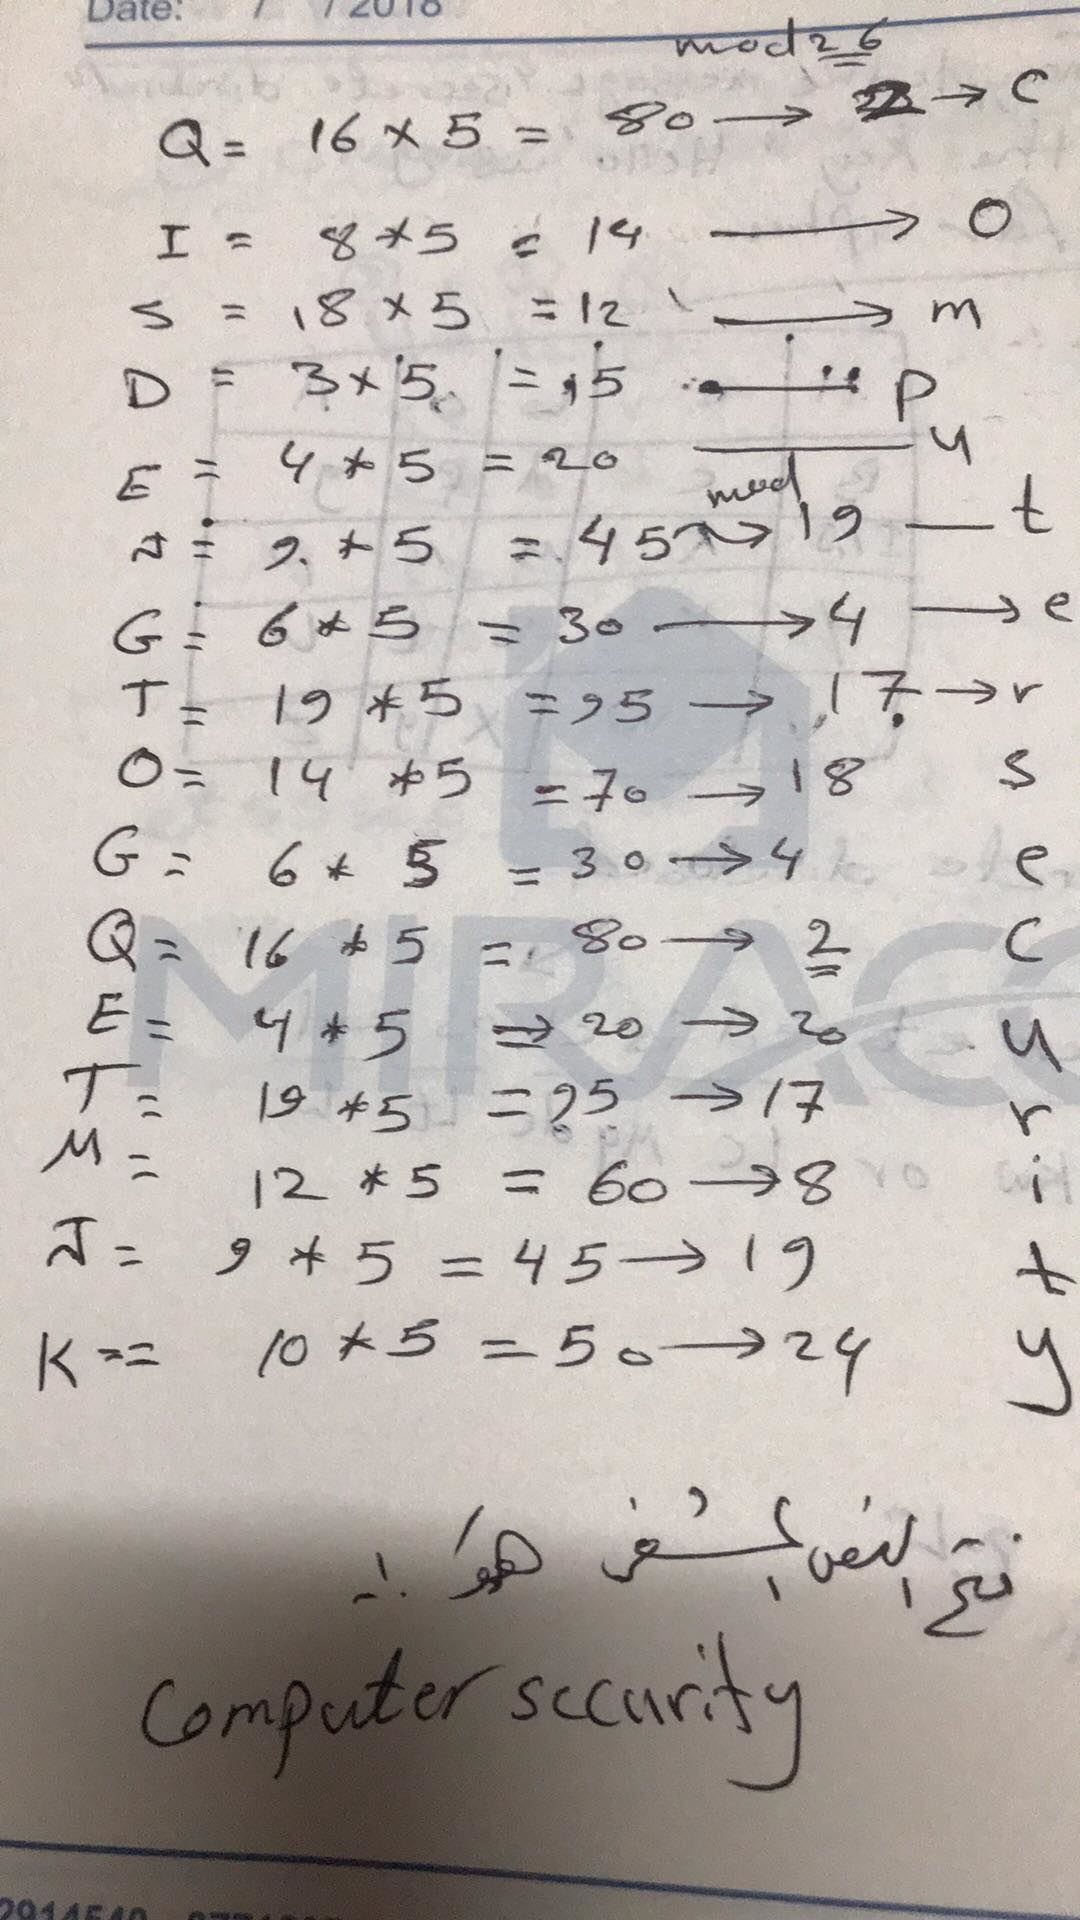 Date: / / 2018
mod 26
Q = 16 × 5 = 80 → 2 → C
I = 8 × 5 = 14 → O
S = 18 × 5 = 12 → m
D = 3 × 5 = 15 → P
E = 4 * 5 = 20 — u
J = 9 * 5 = 45 mod → 19 — t
G = 6 * 5 = 30 → 4 → e
T = 19 * 5 = 95 → 17 → r
O = 14 * 5 = 70 → 18 s
G = 6 * 5 = 30 → 4 e
Q = 16 * 5 = 80 → 2 C
E = 4 * 5 ⇒ 20 → 20 u
T = 19 * 5 = 95 → 17 r
M = 12 * 5 = 60 → 8 i
J = 9 * 5 = 45 → 19 t
K == 10 * 5 = 50 → 24 y
MIRACO
نتج النص المشفر هو :-
Computer security
2914540